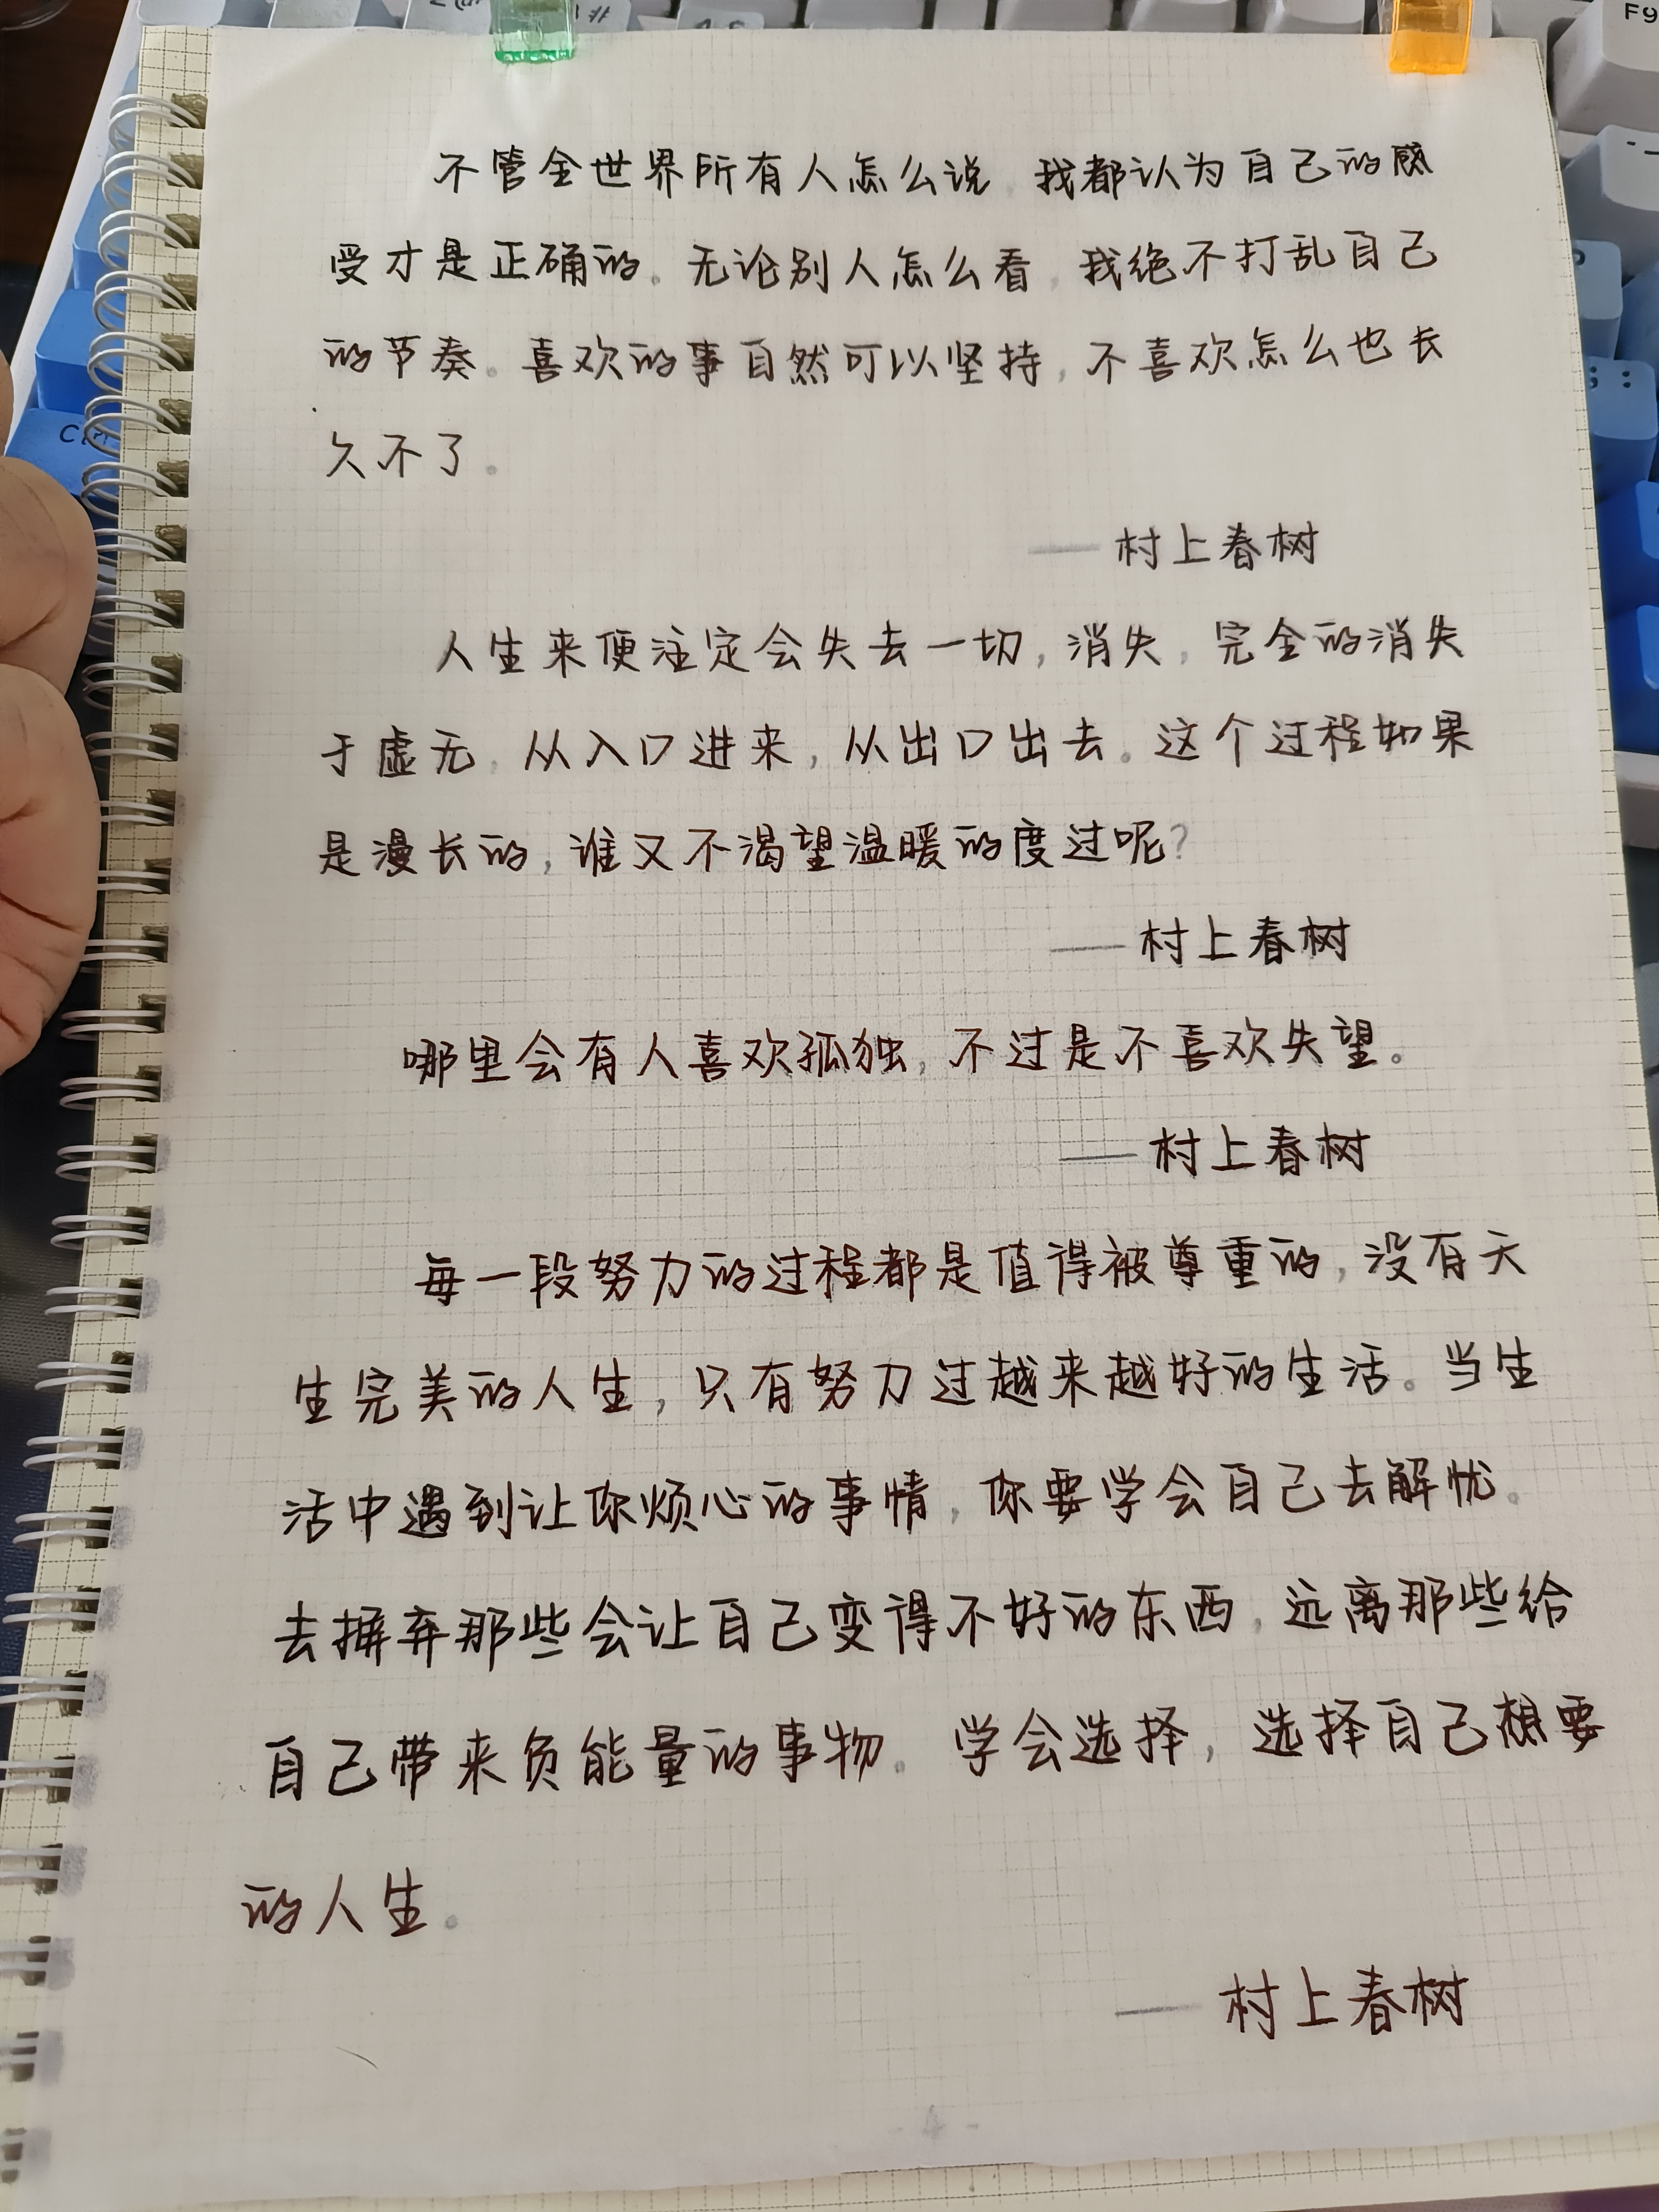 不管全世界所有人怎么说,我都认为自己的感
受才是正确的。无论别人怎么看,我绝不打乱自己
的节奏。喜欢的事自然可以坚持,不喜欢怎么也长
久不了。
——村上春树
人生来便注定会失去一切,消失,完全的消失
于虚无,从入口进来,从出口出去。这个过程如果
是漫长的,谁又不渴望温暖的度过呢?
——村上春树
哪里会有人喜欢孤独,不过是不喜欢失望。
——村上春树
每一段努力的过程都是值得被尊重的,没有天
生完美的人生,只有努力过越来越好的生活。当生
活中遇到让你烦心的事情,你要学会自己去解忧。
去摒弃那些会让自己变得不好的东西,远离那些给
自己带来负能量的事物。学会选择,选择自己想要
的人生。
——村上春树
- 4 -
F9